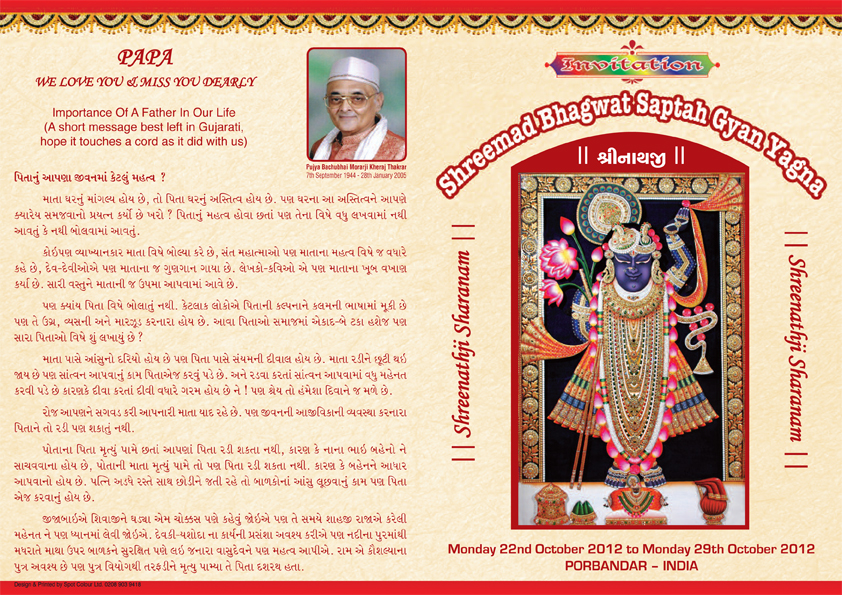 PAPA
WE LOVE YOU & MISS YOU DEARLY
Importance Of A Father In Our Life
(A short message best left in Gujarati,
hope it touches a cord as it did with us)
Pujya Bachubhai Morarji Kheraj Thakrar
7th September 1944 - 28th January 2005
પિતાનું આપણા જીવનમાં કેટલું મહત્વ ?
માતા ઘરનું માંગલ્ય હોય છે, તો પિતા ઘરનું અસ્તિત્વ હોય છે. પણ ઘરના આ અસ્તિત્વને આપણે
ક્યારેય સમજવાનો પ્રયત્ન કર્યો છે ખરો ? પિતાનું મહત્વ હોવા છતાં પણ તેના વિષે વધુ લખવામાં નથી
આવતું કે નથી બોલવામાં આવતું.
કોઈપણ વ્યાખ્યાનકાર માતા વિષે બોલ્યા કરે છે, સંત મહાત્માઓ પણ માતાના મહત્વ વિષે જ વધારે
કહે છે, દેવ-દેવીઓએ પણ માતાના જ ગુણગાન ગાયા છે. લેખકો-કવિઓ એ પણ માતાના ખૂબ વખાણ
કર્યાં છે. સારી વસ્તુને માતાની જ ઉપમા આપવામાં આવે છે.
પણ ક્યાંય પિતા વિષે બોલાતું નથી. કેટલાક લોકોએ પિતાની કલ્પનાને કલમની ભાષામાં મૂકી છે
પણ તે ઉગ્ર, વ્યસની અને મારઝૂડ કરનારા હોય છે. આવા પિતાઓ સમાજમાં એકાદ-બે ટકા હશેજ પણ
સારા પિતાઓ વિષે શું લખાયું છે ?
માતા પાસે આંસુનો દરિયો હોય છે પણ પિતા પાસે સંયમની દીવાલ હોય છે. માતા રડીને છૂટી થઇ
જાય છે પણ સાંત્વન આપવાનું કામ પિતાએજ કરવું પડે છે. અને રડવા કરતાં સાંત્વન આપવામાં વધુ મહેનત
કરવી પડે છે કારણકે દીવા કરતાં દીવી વધારે ગરમ હોય છે ને ! પણ શ્રેય તો હંમેશા દિવાને જ મળે છે.
રોજ આપણને સગવડ કરી આપનારી માતા યાદ રહે છે. પણ જીવનની આજીવિકાની વ્યવસ્થા કરનારા
પિતાને તો રડી પણ શકાતું નથી.
પોતાના પિતા મૃત્યું પામે છતાં આપણાં પિતા રડી શકતા નથી, કારણ કે નાના ભાઇ બહેનો ને
સાચવવાના હોય છે, પોતાની માતા મૃત્યું પામે તો પણ પિતા રડી શકતા નથી. કારણ કે બહેનને આધાર
આપવાનો હોય છે. પત્નિ અડધે રસ્તે સાથ છોડીને જતી રહે તો બાળકોનાં આંસુ લૂછવાનું કામ પણ પિતા
એજ કરવાનું હોય છે.
જીજાબાઇએ શિવાજીને ઘડ્યા એમ ચોક્કસ પણે કહેવું જોઇએ પણ તે સમયે શાહજી રાજાએ કરેલી
મહેનત ને પણ ધ્યાનમાં લેવી જોઇએ. દેવકી-યશોદા ના કાર્યની પ્રસંશા અવશ્ય કરીએ પણ નદીના પુરમાંથી
મધરાતે માથા ઉપર બાળકને સુરક્ષિત પણે લઇ જનારા વાસુદેવને પણ મહત્વ આપીએ. રામ એ કૌશલ્યાના
પુત્ર અવશ્ય છે પણ પુત્ર વિયોગથી તરફડીને મૃત્યુ પામ્યા તે પિતા દશરથ હતા.
Design & Printed by Spot Colour Ltd. 0208 903 9418
Invitation
Shreemad Bhagwat Saptah Gyan Yagna
|| શ્રીનાથજી ||
|| Shreenathji Sharanam ||
|| Shreenathji Sharanam ||
Monday 22nd October 2012 to Monday 29th October 2012
PORBANDAR – INDIA